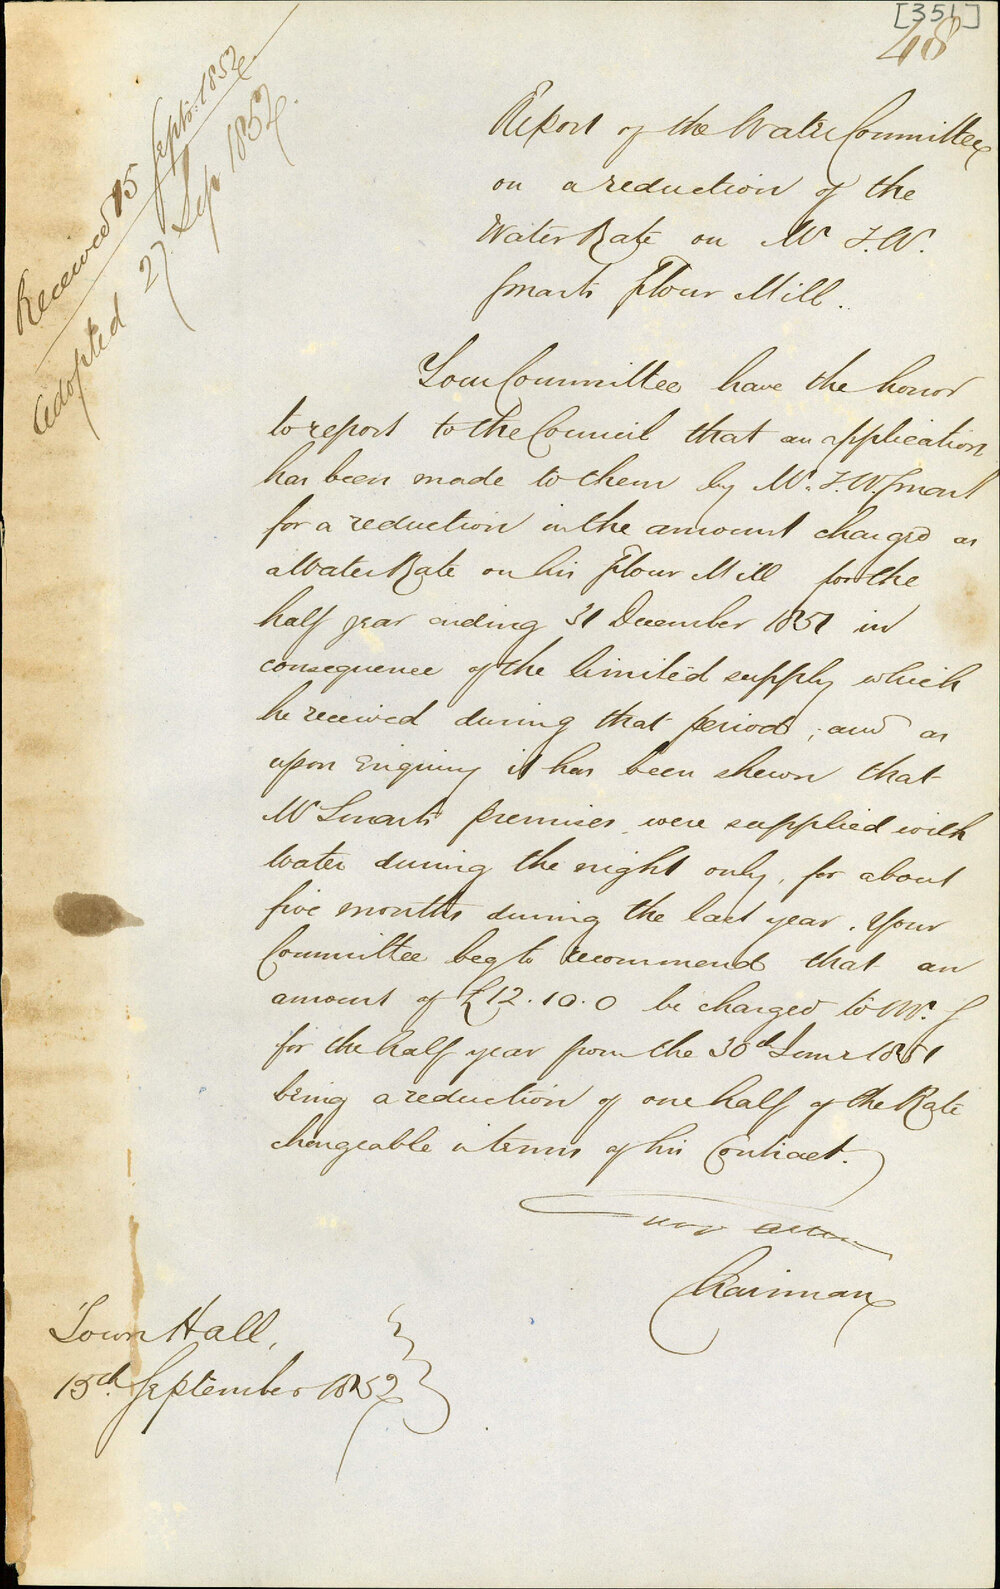 [351]
48
Received 15 Septr. 1852
Adopted 27 Sep 1852.
Report of the Water Committee
on a reduction of the
Water Rate on Mr T.W.
Smarts Flour Mill.
Your Committee have the honor
to report to the Council that an application
has been made to them by Mr. T.W. Smart
for a reduction in the amount charged as
a Water Rate on his Flour Mill for the
half year ending 31 December 1851 in
consequence of the limited supply which
he received during that period; and as
upon Enquiry it has been shewn that
Mr Smarts premises were supplied with
Water during the night only, for about
five months during the last year. Your
Committee beg to recommend that an
amount of £12.10.0 be charged to Mr. S
for the half year from the 30th June 1851
being a reduction of one half of the Rate
chargeable in terms of his Contract.
Chairman
Town Hall,
15th September 1852